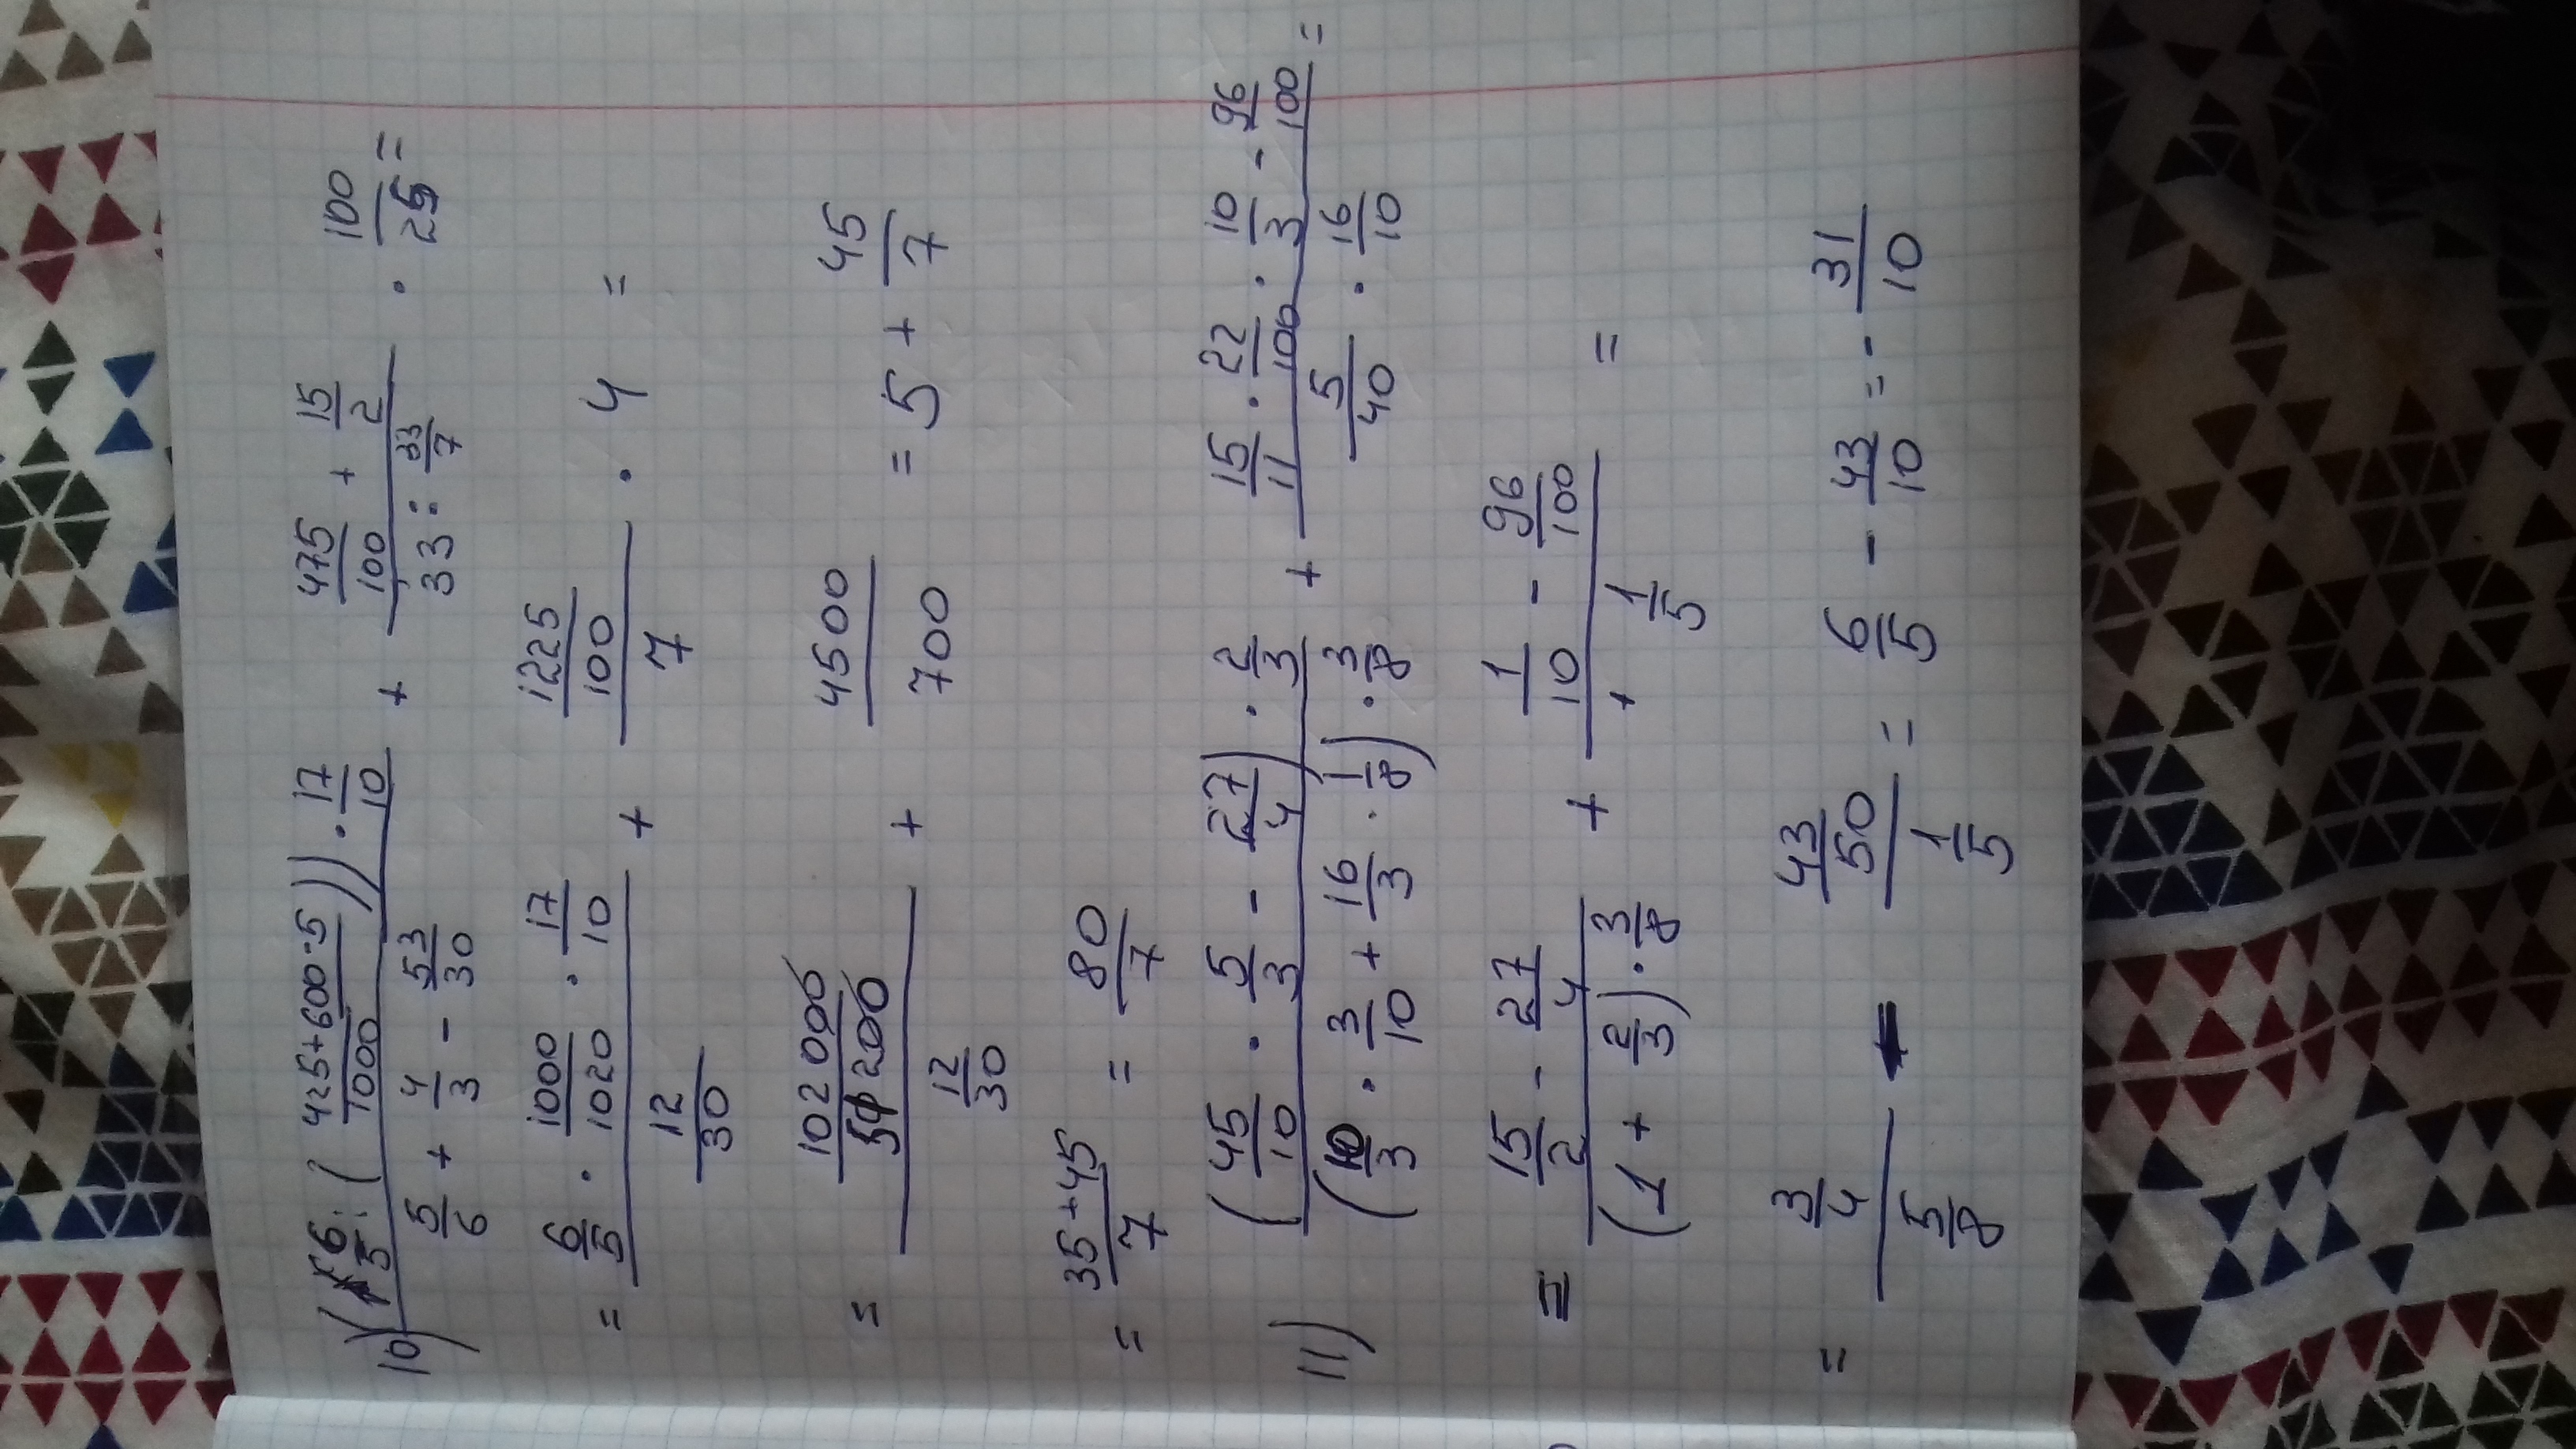 10) ((6/5 : (425+600-5)/1000)) · 17/10 / 5/6 + 4/3 - 53/30 + 475/100 + 15/2 / 33 : 33/7 · 100/25 =
= 6/5 · 1000/1020 · 17/10 / 12/30 + 1225/100 / 7 · 4 =
= 102000/51200 / 12/30 + 4500/700 = 5 + 45/7
= 35+45/7 = 80/7
11) (45/10 · 5/3 - 27/4) · 2/3 / (10/3 · 3/10 + 16/3 · 1/8) · 3/8 + 15/11 · 22/100 · 10/3 - 96/100 / 5/40 · 16/10 =
= 15/2 - 27/4 / (1 + 2/3) · 3/8 + 1/10 - 96/100 / + 1/5 =
= 3/4 / 5/8 - 43/50 / 1/5 = 6/5 - 43/10 = - 31/10